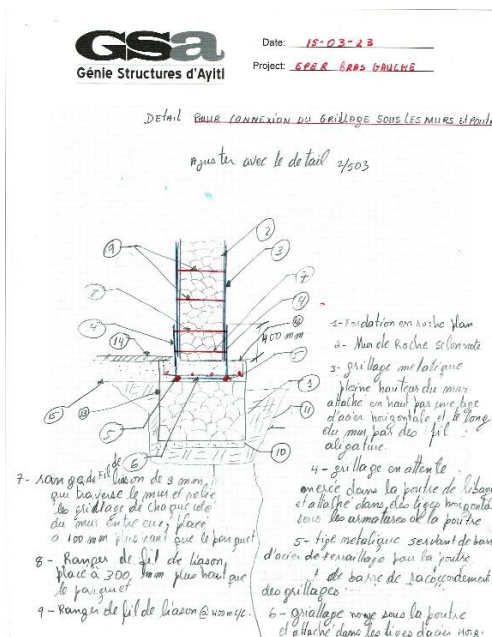 GSa
Génie Structures d'Ayiti
Date: 15-03-23
Project: EPER BRAS GAUCHE
DETAIL POUR CONNEXION DU GRILLAGE SOUS LES MURS et POUT
Ajuster avec le detail 2/503
9
2
3
7
4
4
400 mm
14
5
1
15
11
5
6
10
1- Fondation en roche plan.
2- Mur de Roche selon note
3- grillage metalique
pleine hauteur du mur
attaché en haut par une tige
d'acier horizontale et le long
du mur par des fil
aligature.
4- grillage en attente
dans la poutre de
et attaché dans les tiges horizontal
sous les armatures de la poutre
5- tige metalique servant de bar
d'acier de ferraillage pour la poutre
+ de barre de raccordement
des grillages.
6- griallage noye sous la poutre
et attaché dans les tiges d'acier HORI.
7- range de Fil de liason de 3 mm,
qui traverse le mur et relie
les grillage de chaque coté
du mur entre eux, placé
a 100 mm plus haut que le parquet
8- Ranger de fil de liason
placé à 300, mm plus haut que
le parquet
9- Ranger de fil de liason @ 400 m c/c.